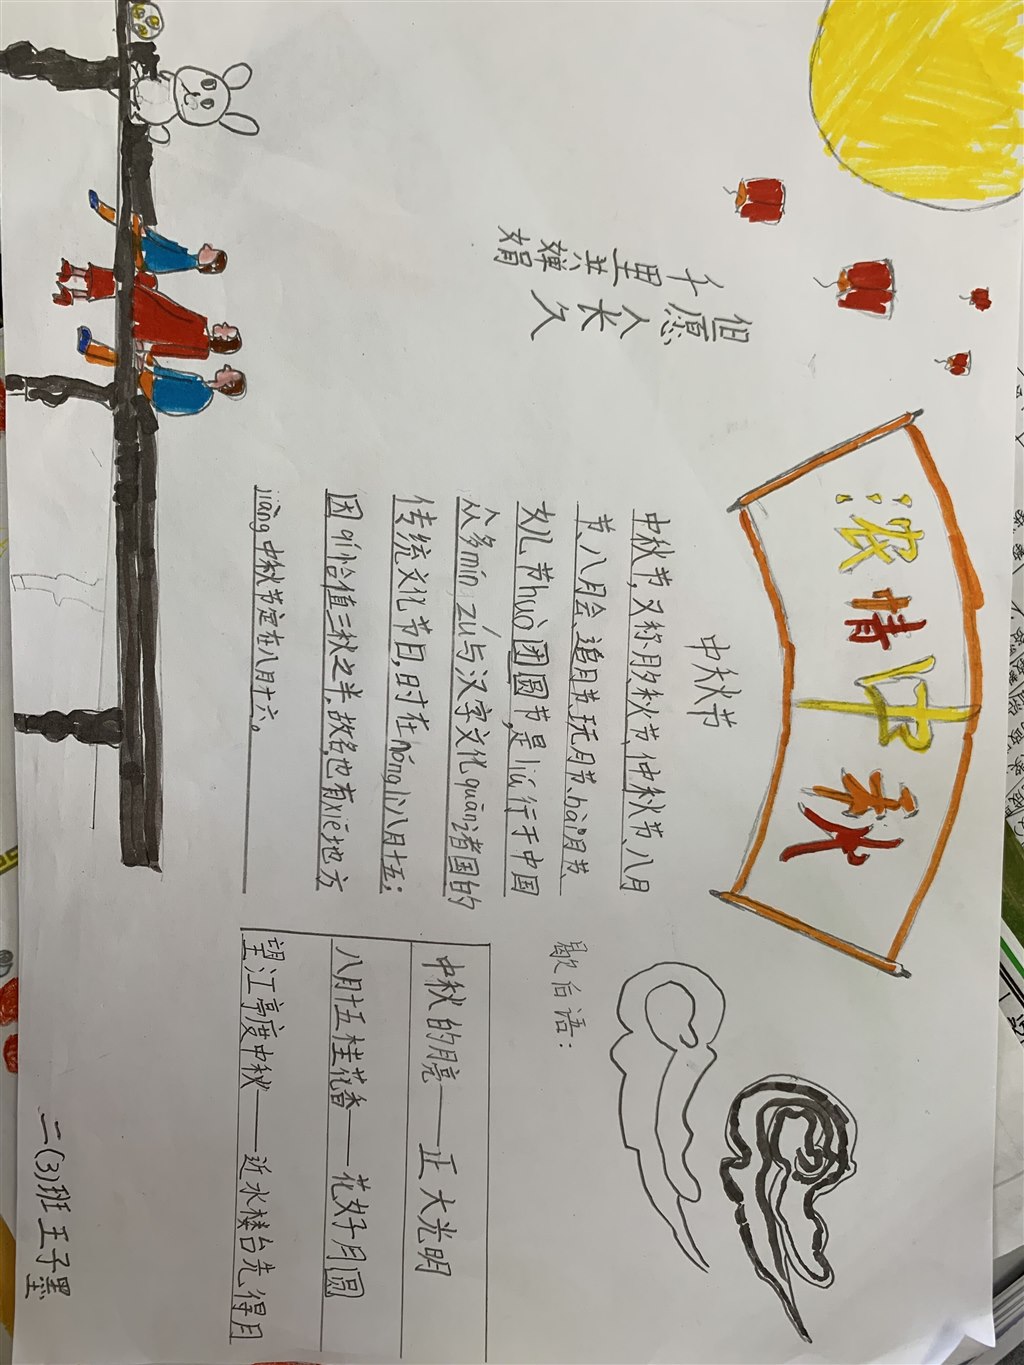 浓情中秋
但愿人长久
千里共婵娟
中秋节
中秋节,又称月夕秋节、仲秋节、八月
节、八月会、追月节、玩月节、bài月节、
女儿节huò团圆节,是liú行于中国
众多mín zú与汉字文化quān诸国的
传统文化节日,时在nóng lì八月十五;
因qí恰值三秋之半,故名,也有xiē地方
jiāng中秋节定在八月十六。
歇后语:
中秋的月亮——正大光明
八月十五桂花香——花好月圆
望江亭度中秋——近水楼台先得月
二(3)班王子墨